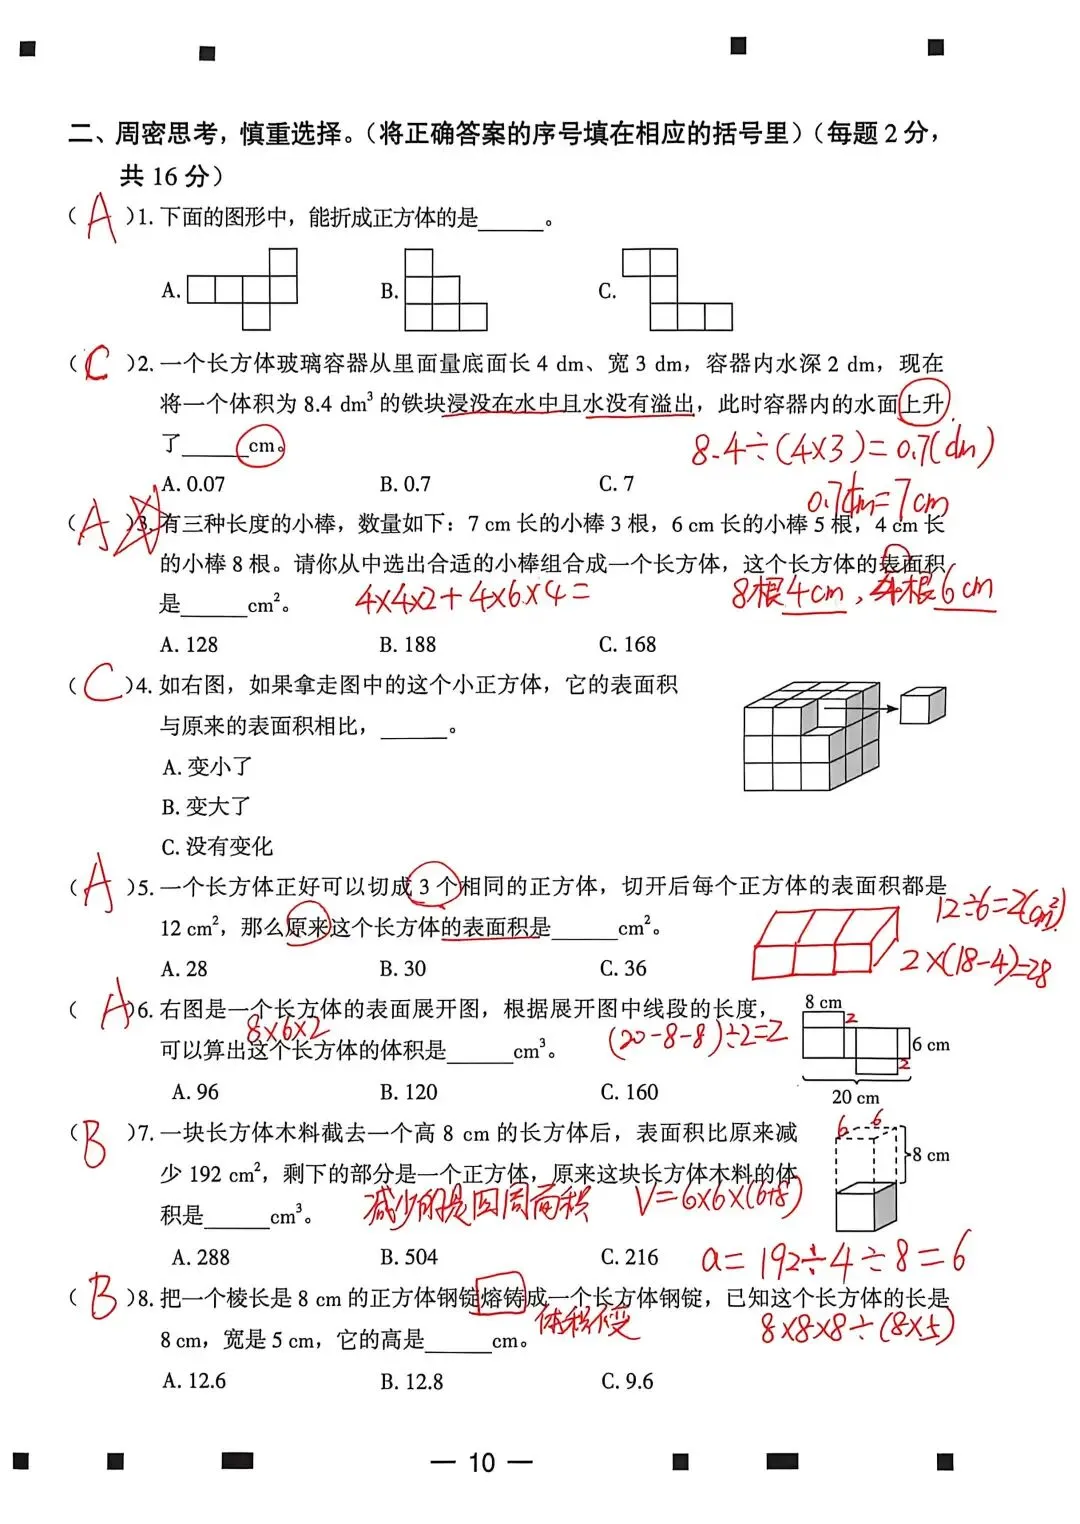 二、周密思考，慎重选择。（将正确答案的序号填在相应的括号里）（每题 2 分，
共 16 分）
（ A ）1. 下面的图形中，能折成正方体的是______。
A. B. C.
（ C ）2. 一个长方体玻璃容器从里面量底面长 4 dm、宽 3 dm，容器内水深 2 dm，现在
将一个体积为 8.4 dm³ 的铁块浸没在水中且水没有溢出，此时容器内的水面上升
了______cm。
8.4÷(4×3)=0.7(dm)
A. 0.07 B. 0.7 C. 7
0.7dm=7cm
（ A ）3. 有三种长度的小棒，数量如下：7 cm 长的小棒 3 根，6 cm 长的小棒 5 根，4 cm 长
的小棒 8 根。请你从中选出合适的小棒组合成一个长方体，这个长方体的表面积
是______cm²。 4×4×2+4×6×4= 8根4cm、4根6cm
A. 128 B. 188 C. 168
（ C ）4. 如右图，如果拿走图中的这个小正方体，它的表面积
与原来的表面积相比，______。
A. 变小了
B. 变大了
C. 没有变化
（ A ）5. 一个长方体正好可以切成 3 个相同的正方体，切开后每个正方体的表面积都是
12 cm²，那么原来这个长方体的表面积是______cm²。
12÷6=2(cm²)
A. 28 B. 30 C. 36
2×(18-4)=28
（ A ）6. 右图是一个长方体的表面展开图，根据展开图中线段的长度，
8×6×2
可以算出这个长方体的体积是______cm³。
(20-8-8)÷2=2
A. 96 B. 120 C. 160
8 cm
2
6 cm
2
20 cm
（ B ）7. 一块长方体木料截去一个高 8 cm 的长方体后，表面积比原来减
少 192 cm²，剩下的部分是一个正方体，原来这块长方体木料的体
积是______cm³。 减少的是四周面积 V=6×6×(6+8)
6 6
8 cm
A. 288 B. 504 C. 216
a=192÷4÷8=6
（ B ）8. 把一个棱长是 8 cm 的正方体钢锭熔铸成一个长方体钢锭，已知这个长方体的长是
8 cm，宽是 5 cm，它的高是______cm。 体积不变 8×8×8÷(8×5)
A. 12.6 B. 12.8 C. 9.6
— 10 —